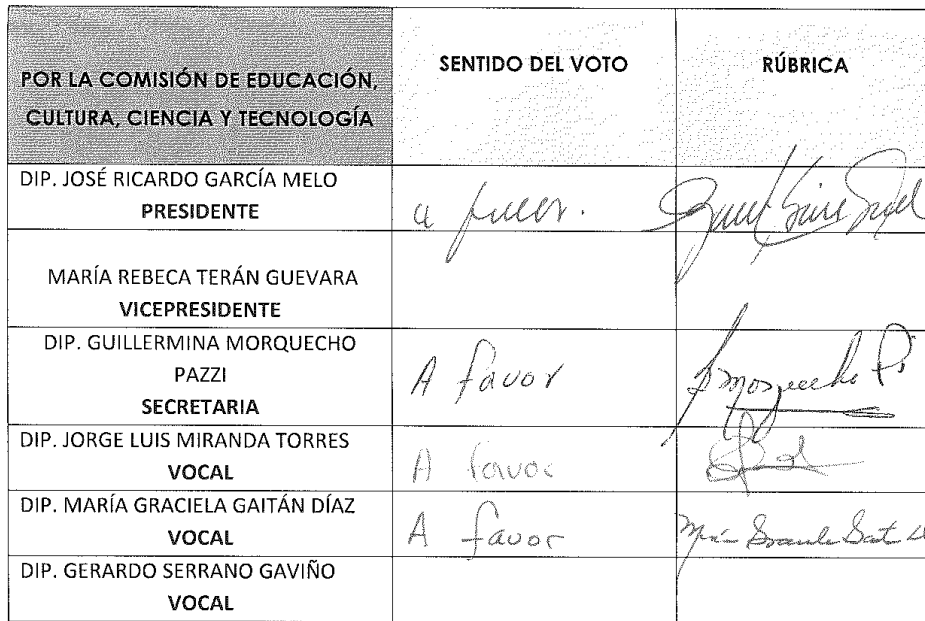 POR LA COMISIÓN DE EDUCACIÓN,
CULTURA, CIENCIA Y TECNOLOGÍA
SENTIDO DEL VOTO
RÚBRICA
DIP. JOSÉ RICARDO GARCÍA MELO
PRESIDENTE
a favor.
MARÍA REBECA TERÁN GUEVARA
VICEPRESIDENTE
DIP. GUILLERMINA MORQUECHO
PAZZI
SECRETARIA
A favor
DIP. JORGE LUIS MIRANDA TORRES
VOCAL
A favor
DIP. MARÍA GRACIELA GAITÁN DÍAZ
VOCAL
A favor
DIP. GERARDO SERRANO GAVIÑO
VOCAL